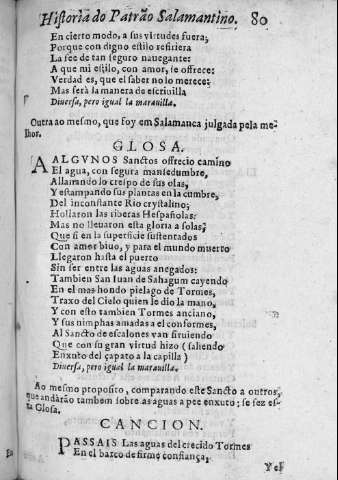 Historia do Patrão Salamantino. 80
En cierto modo, a sus virtudes fuera,
Porque con digno estilo refiriera
La fee de tan seguro nauegante:
A que mi estilo, con amor, se offrece:
Verdad es, que el saber no lo merece:
Mas serà la manera de escriuilla
Diuersa, pero igual la marauilla.
Outra ao mesmo, que foy em Salamanca julgada pela me-
lhor.
GLOSA.
A ALGVNOS Sanctos offrecio camino
El agua, con segura mansedumbre,
Allanando lo crespo de sus olas,
Y estampando sus plantas en la cumbre,
Del inconstante Rio crystalino;
Hollaron las riberas Hespañolas:
Mas no lleuaron esta gloria a solas,
Que si en la superficie sustentados
Con amor biuo, y para el mundo muerto
Llegaron hasta el puerto
Sin ser entre las aguas anegados:
Tambien San Iuan de Sahagum cayendo
En el mas hondo pielago de Tormes,
Traxo del Cielo quien le dio la mano,
Y con esto tambien Tormes anciano,
Y sus nimphas amadas a el conformes,
Al Sancto de escalones van siruiendo
Que con su gran virtud hizo (saliendo
Enxuto del çapato a la capilla)
Diuersa, pero igual la marauilla.
Ao mesmo proposito, comparando este Sancto a outros,
que andàrão tambem sobre as aguas a pee enxuto; se fez es-
ta Glosa.
CANCION.
PASSAIS Las aguas del crecido Tormes
En el barco de firme confiança,
Yel